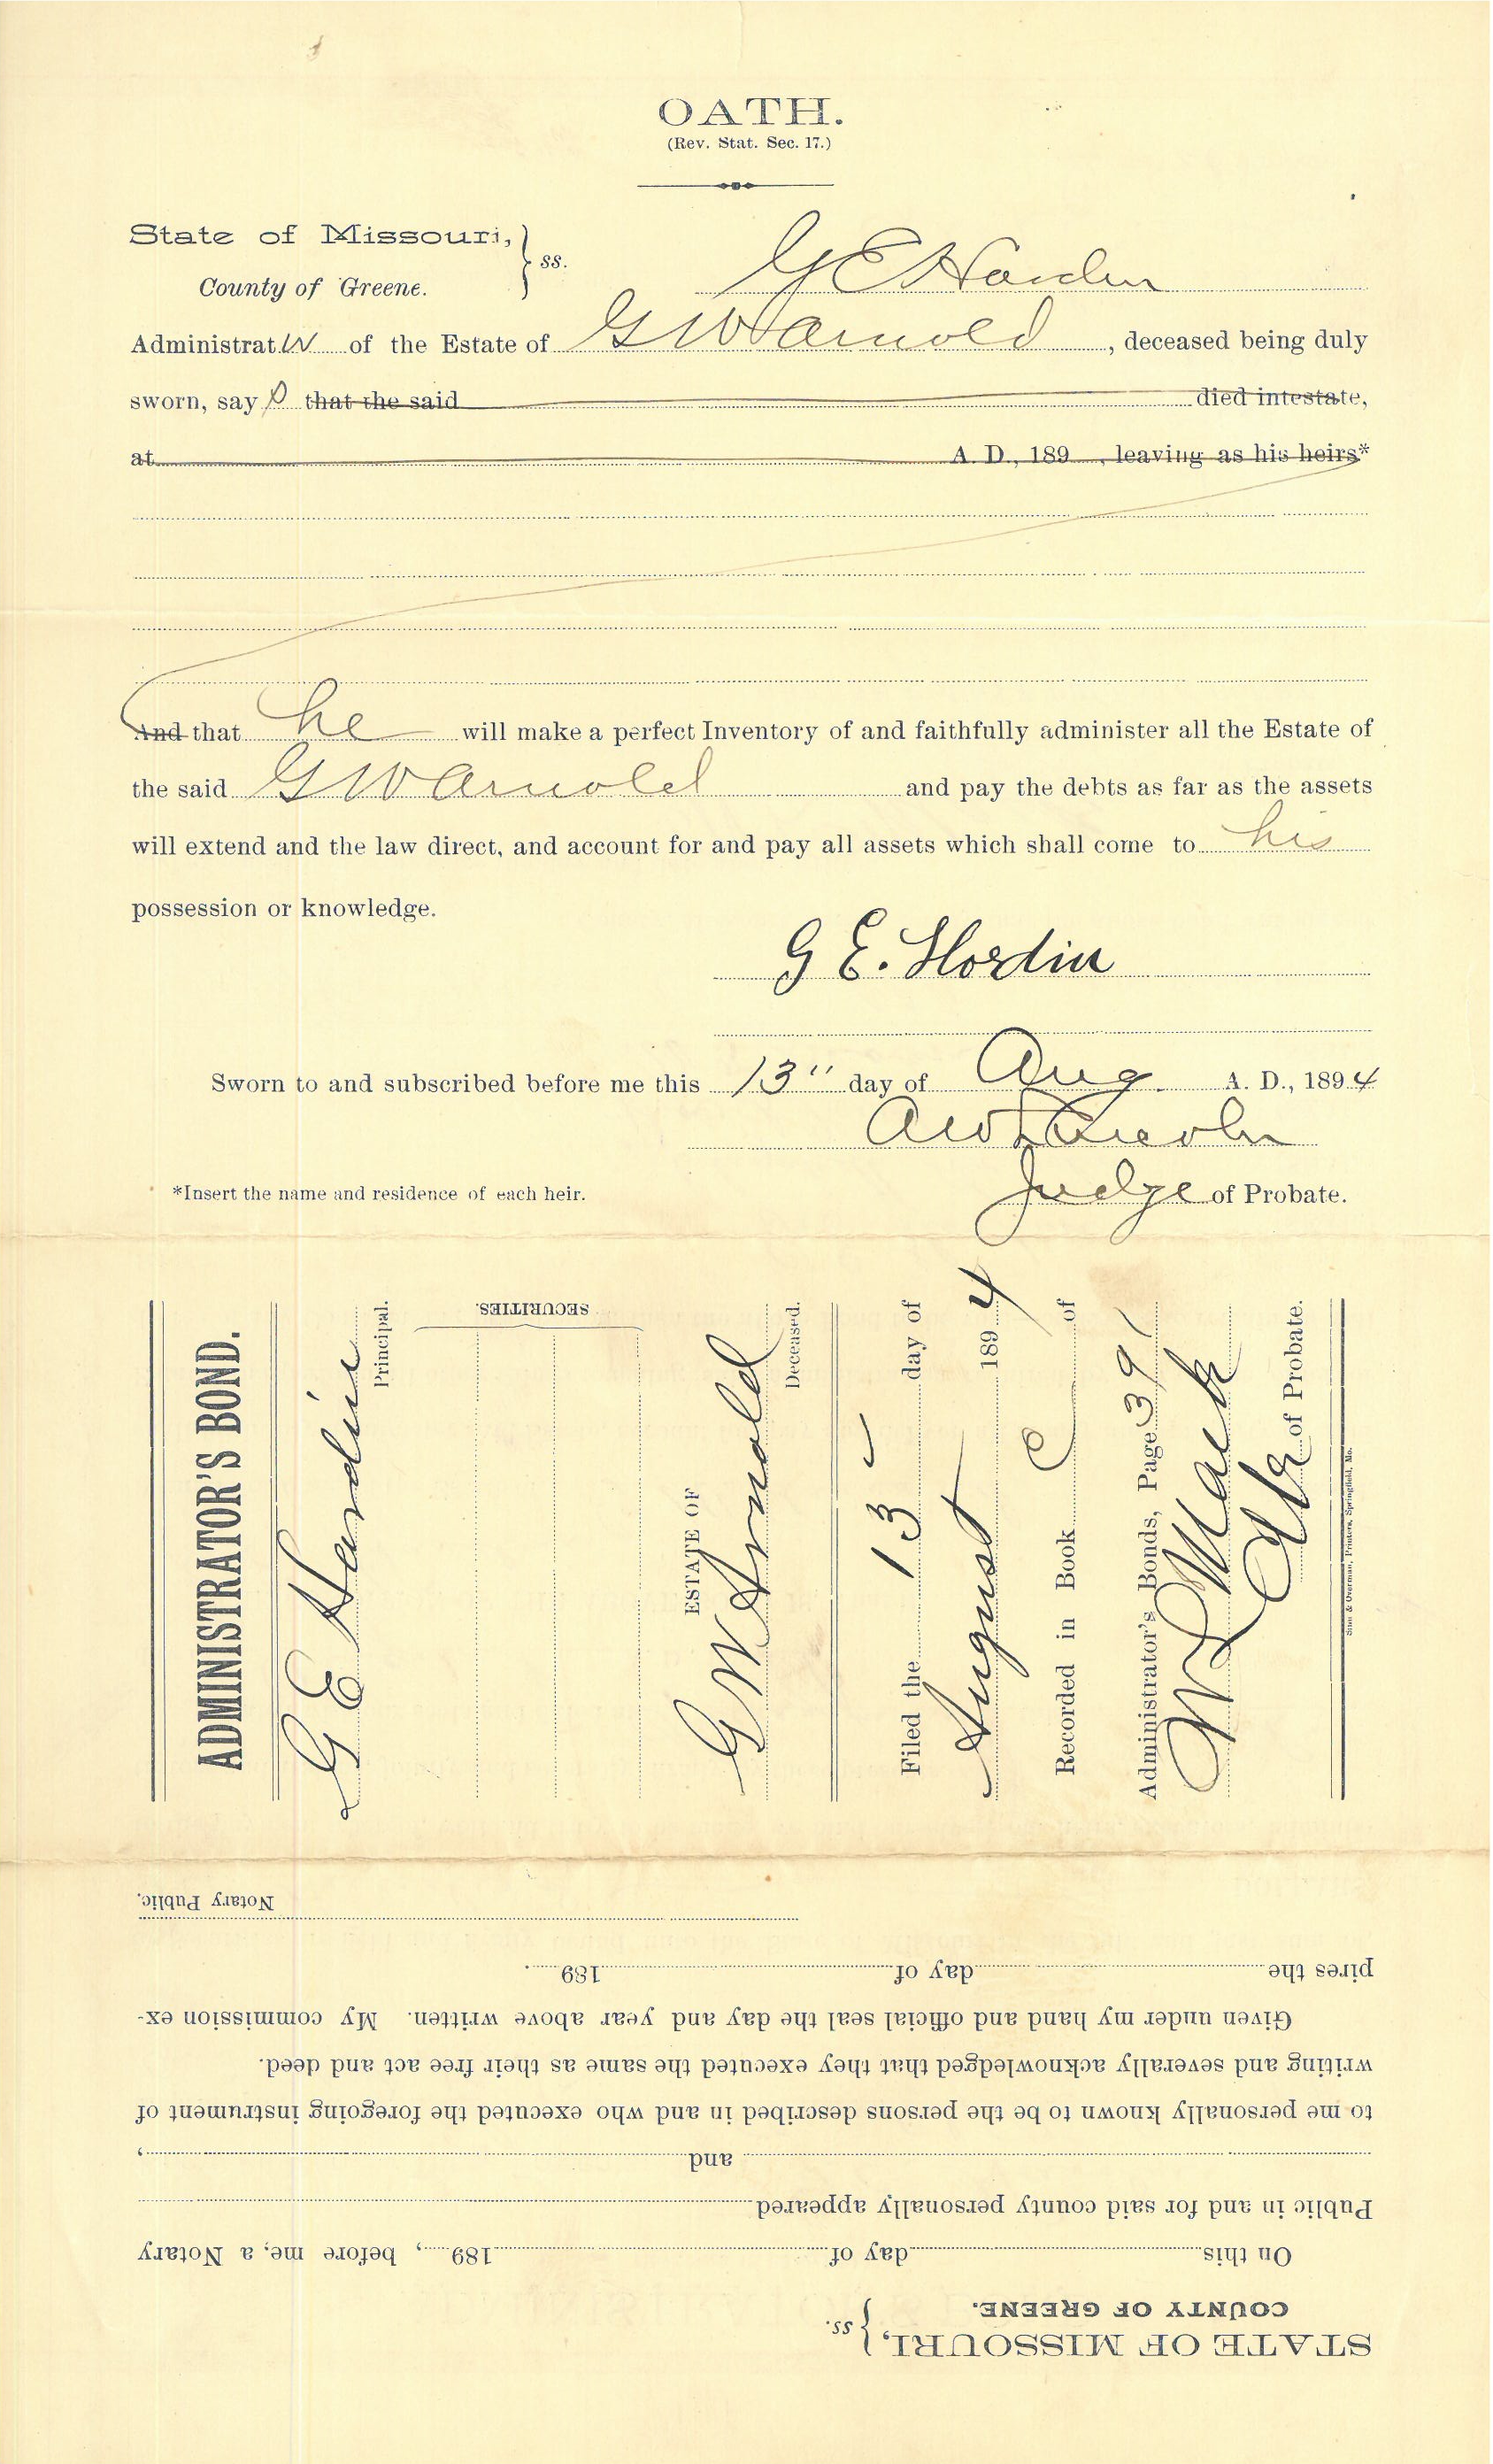 OATH.
(Rev. Stat. Sec. 17.)
State of Missouri, } ss.
County of Greene.
G E Hardin
Administrator of the Estate of G W Arnold, deceased being duly
sworn, says that the said died intestate,
at A. D., 189 , leaving as his heirs*
And that he will make a perfect Inventory of and faithfully administer all the Estate of
the said G W Arnold and pay the debts as far as the assets
will extend and the law direct, and account for and pay all assets which shall come to his
possession or knowledge.
G E. Hardin
Sworn to and subscribed before me this 13" day of Aug. A. D., 1894
A W Lincoln
*Insert the name and residence of each heir.
Judge of Probate.
ADMINISTRATOR'S BOND.
G E Hardin
Principal.
SECURITIES.
ESTATE OF
G W Arnold
Deceased.
Filed the 13 day of
August 1894
Recorded in Book C of
Administrator's Bonds, Page 391
W L Mack
Clk of Probate.
& Overman, Printers, Springfield, Mo.
STATE OF MISSOURI, } ss.
COUNTY OF GREENE.
On this day of 189 , before me, a Notary
Public in and for said county personally appeared
and ,
to me personally known to be the persons described in and who executed the foregoing instrument of
writing and severally acknowledged that they executed the same as their free act and deed.
Given under my hand and official seal the day and year above written. My commission ex-
pires the day of 189 .
Notary Public.